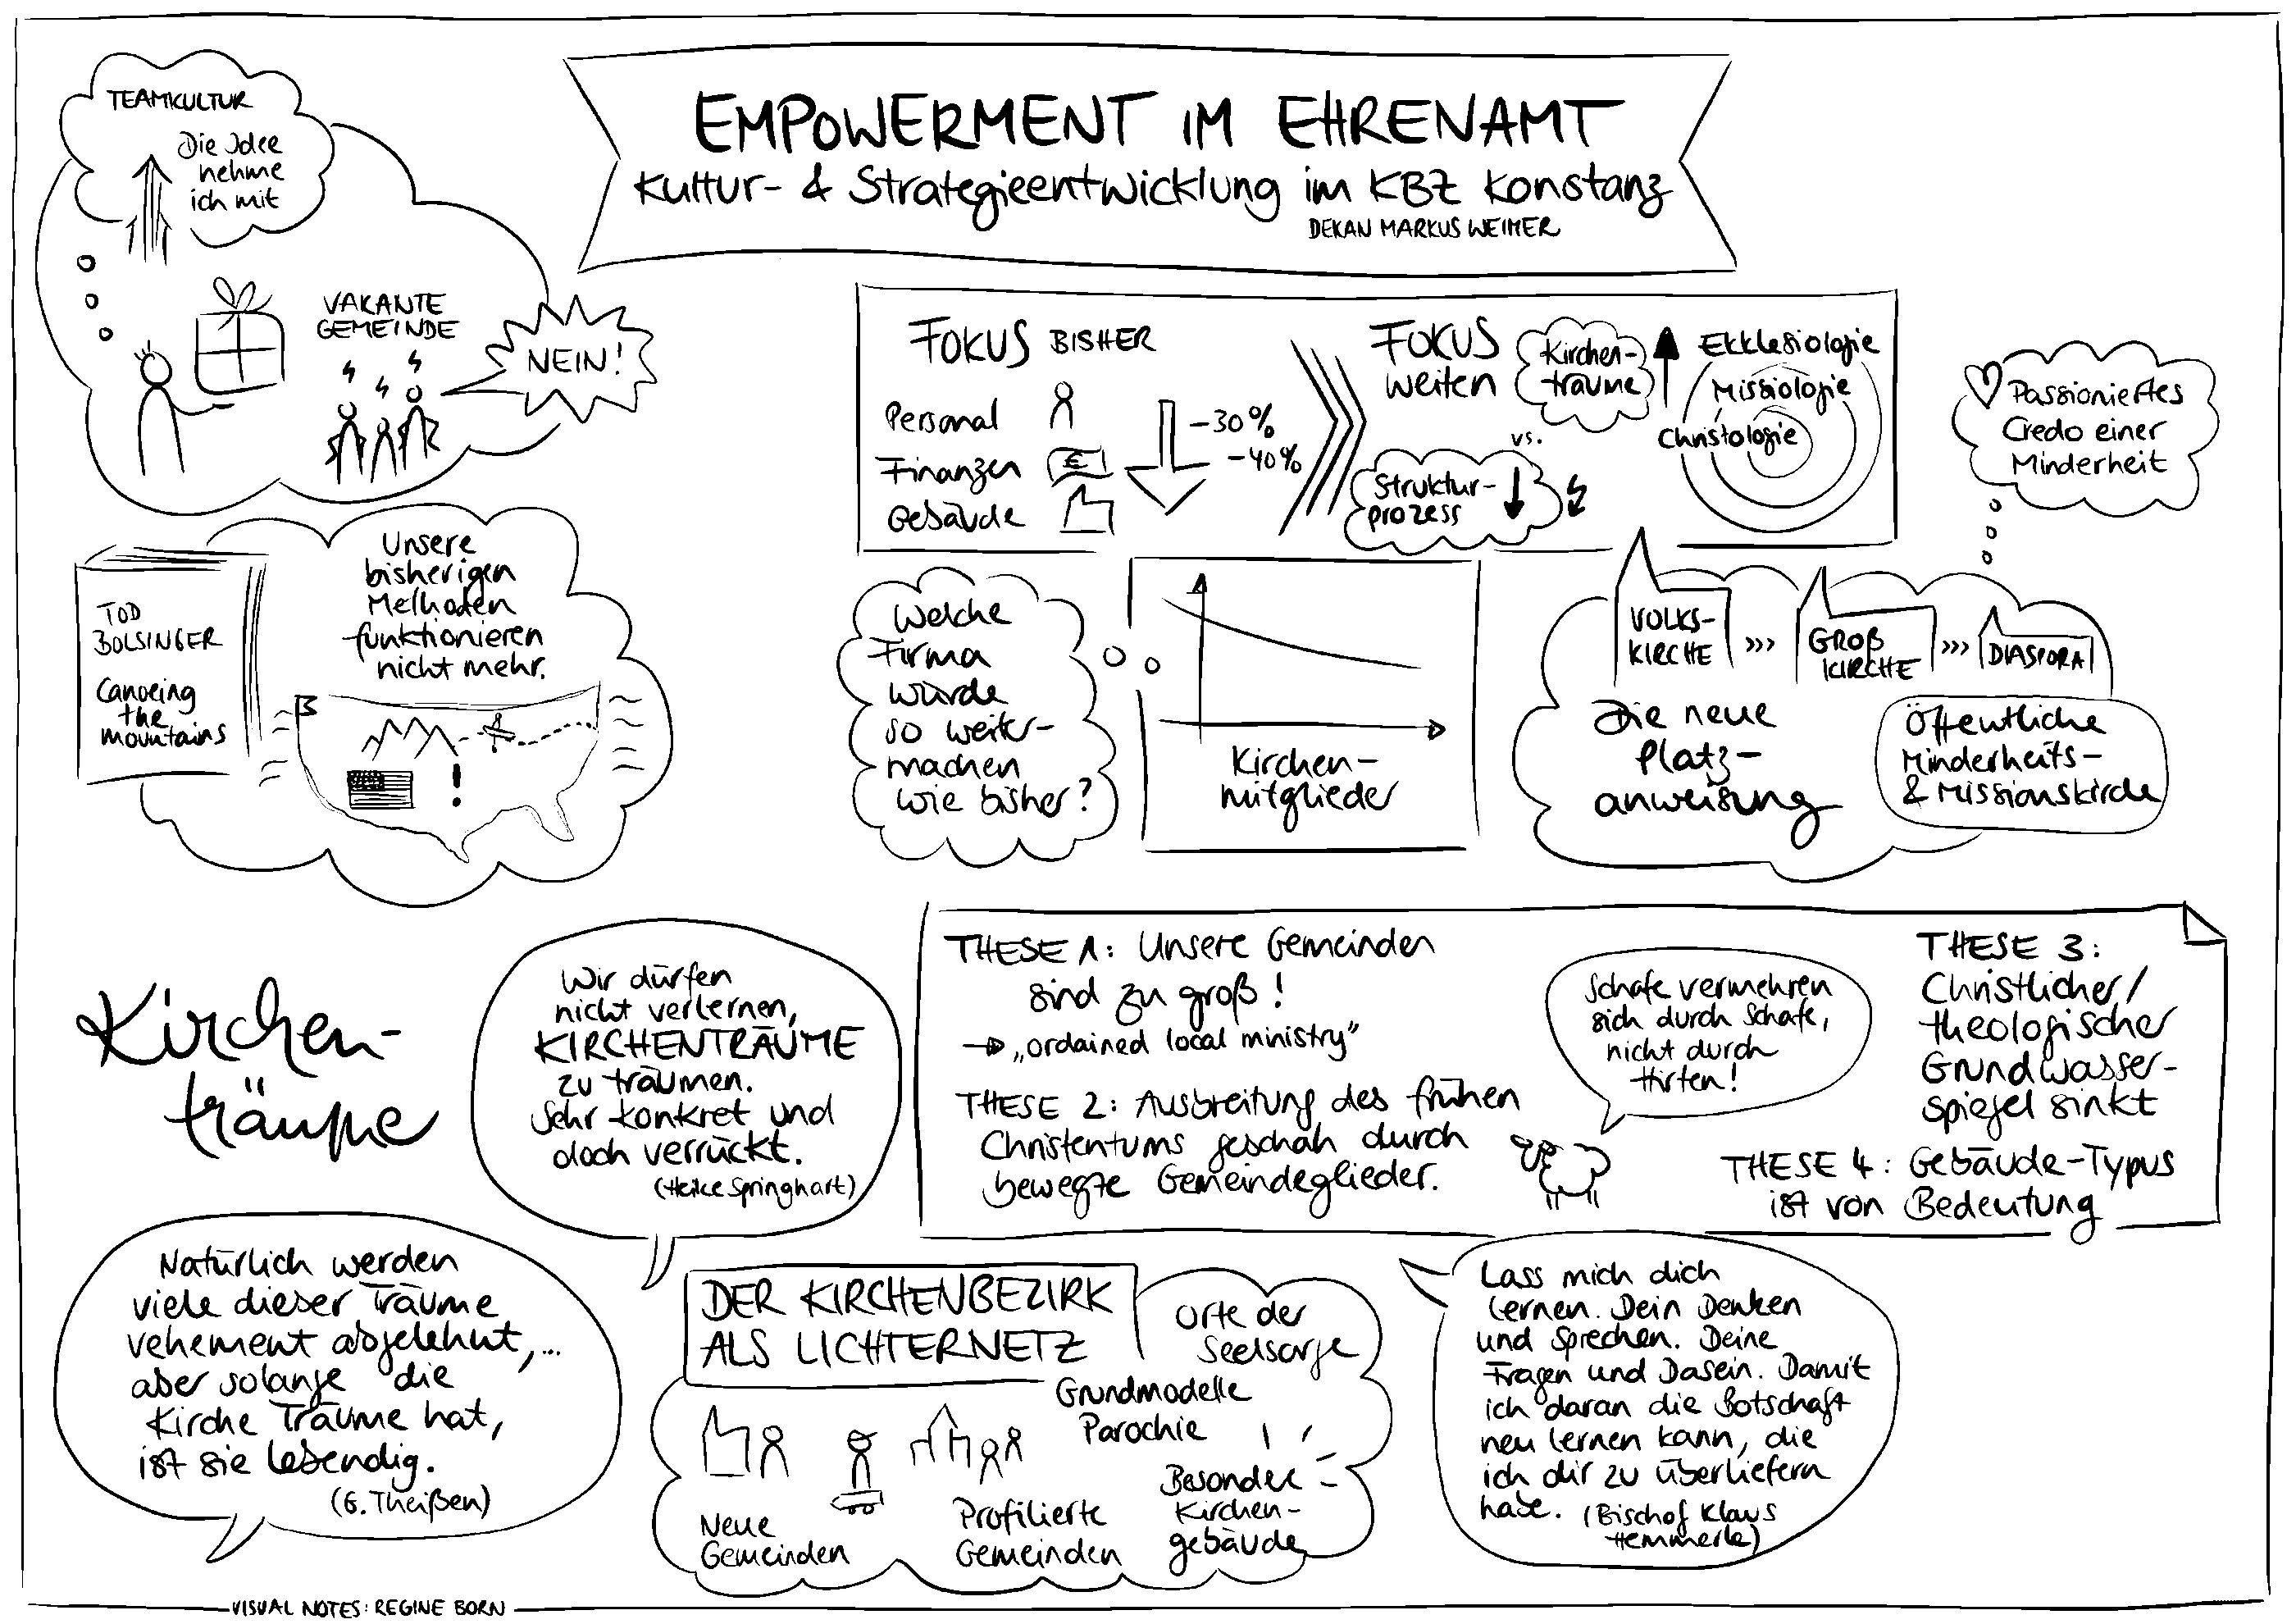 EMPOWERMENT IM EHRENAMT
Kultur- & Strategieentwicklung im KBZ Konstanz
DEKAN MARKUS WEIMER
TEAMKULTUR
Die Idee
nehme
ich mit
VAKANTE
GEMEINDE
NEIN!
FOKUS BISHER
Personal
Finanzen
€
Gebäude
-30%
-40%
FOKUS
weiten
Kirchen-
träume
vs.
Struktur-
prozess
Ekklesiologie
Missiologie
Christologie
Passioniertes
Credo einer
Minderheit
TOD
BOLSINGER
Canoeing
the
mountains
Unsere
bisherigen
Methoden
funktionieren
nicht mehr.
!
Welche
Firma
würde
so weiter-
machen
wie bisher?
Kirchen-
mitglieder
VOLKS-
KIRCHE
>>>
GROß
KIRCHE
>>>
DIASPORA
Die neue
Platz-
anweisung
Öffentliche
Minderheits-
& Missionskirche
Kirchen-
träume
Wir dürfen
nicht verlernen,
KIRCHENTRÄUME
zu träumen.
Sehr konkret und
doch verrückt.
(Heike Springhart)
THESE 1: Unsere Gemeinden
sind zu groß!
→ „ordained local ministry"
THESE 2: Ausbreitung des frühen
Christentums geschah durch
bewegte Gemeindeglieder.
Schafe vermehren
sich durch Schafe,
nicht durch
Hirten!
THESE 3:
Christlicher/
theologischer
Grundwasser-
spiegel sinkt
THESE 4: Gebäude-Typus
ist von Bedeutung
Natürlich werden
viele dieser Träume
vehement abgelehnt,...
aber solange die
Kirche Träume hat,
ist sie lebendig.
(G. Theißen)
DER KIRCHENBEZIRK
ALS LICHTERNETZ
Orte der
Seelsorge
Grundmodelle
Parochie
Neue
Gemeinden
Profilierte
Gemeinden
Besondere
Kirchen-
gebäude
Lass mich dich
lernen. Dein Denken
und Sprechen. Deine
Fragen und Dasein. Damit
ich daran die Botschaft
neu lernen kann, die
ich dir zu überliefern
habe. (Bischof Klaus
Hemmerle)
VISUAL NOTES: REGINE BORN